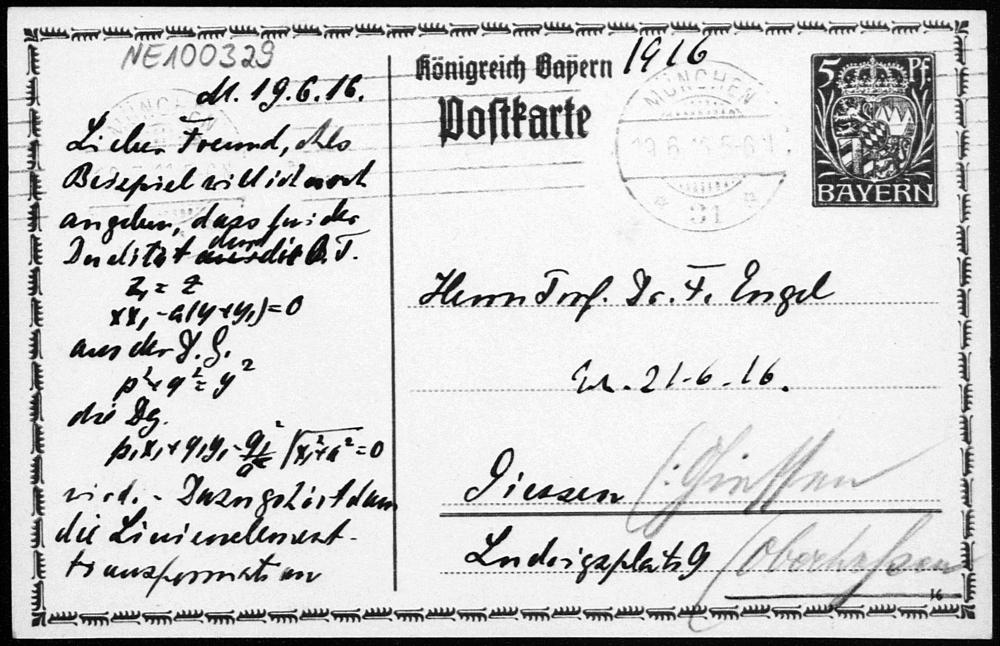 NE100329
M. 19.6.16.
Lieber Freund, Als
Beispiel will ich noch
angeben, dass für die
Dualität durch die B.T.
z₁ = z
xx₁ - a(y+y₁) = 0
aus der D.G.
p² + q² = y²
die Dg.
p₁x₁ + q₁y₁ - √x₁² + a² = 0
wird. - Dazu gehört dann
die Linienelement-
transformation
Königreich Bayern 1916
Postkarte
MÜNCHEN
19.6.16.5-6N.
31
5 Pf.
BAYERN
Herrn Prof. Dr. F. Engel
Eh. 21.6.16.
Giessen (: Gießen
Ludwigsplatz 9 (Oberhessen
16